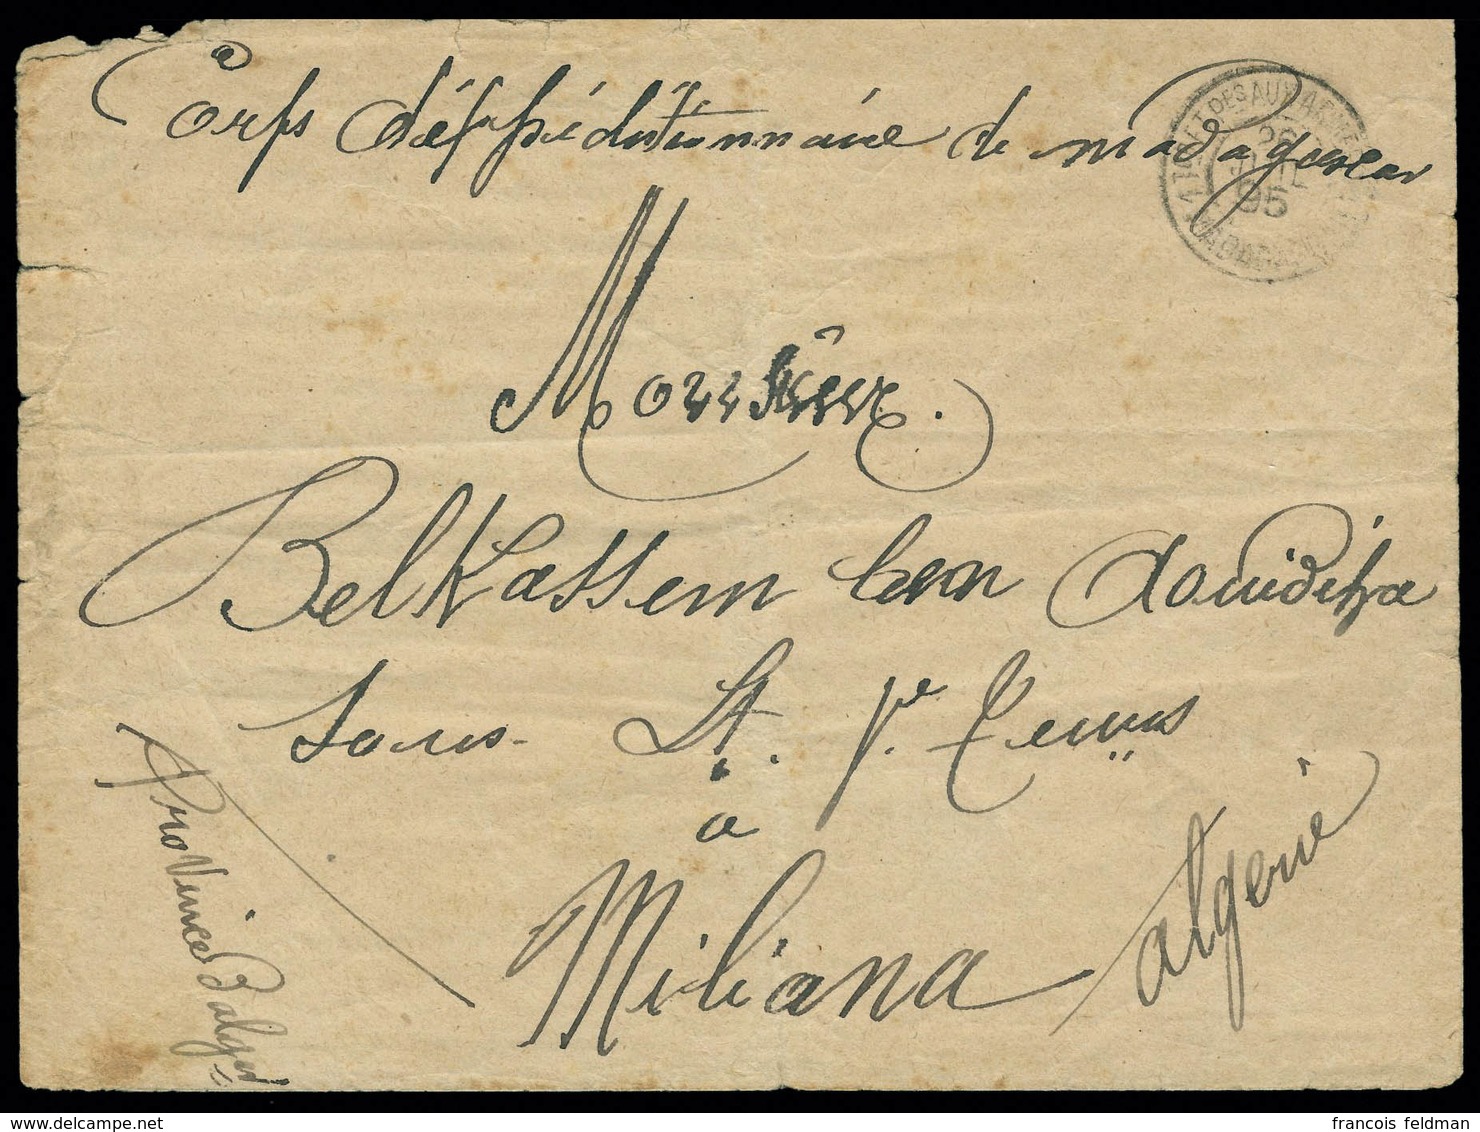 Corps d'éxpéditionnaire de madagascar
TRÉSOR ET POSTES AUX ARMÉES
26
JUIL
95
MADAGASCAR
Monsieur.
BelKassem ben Aouiditza
sous Lt. pr
a
Miliana algerie
ProVince d'alger
francois feldman